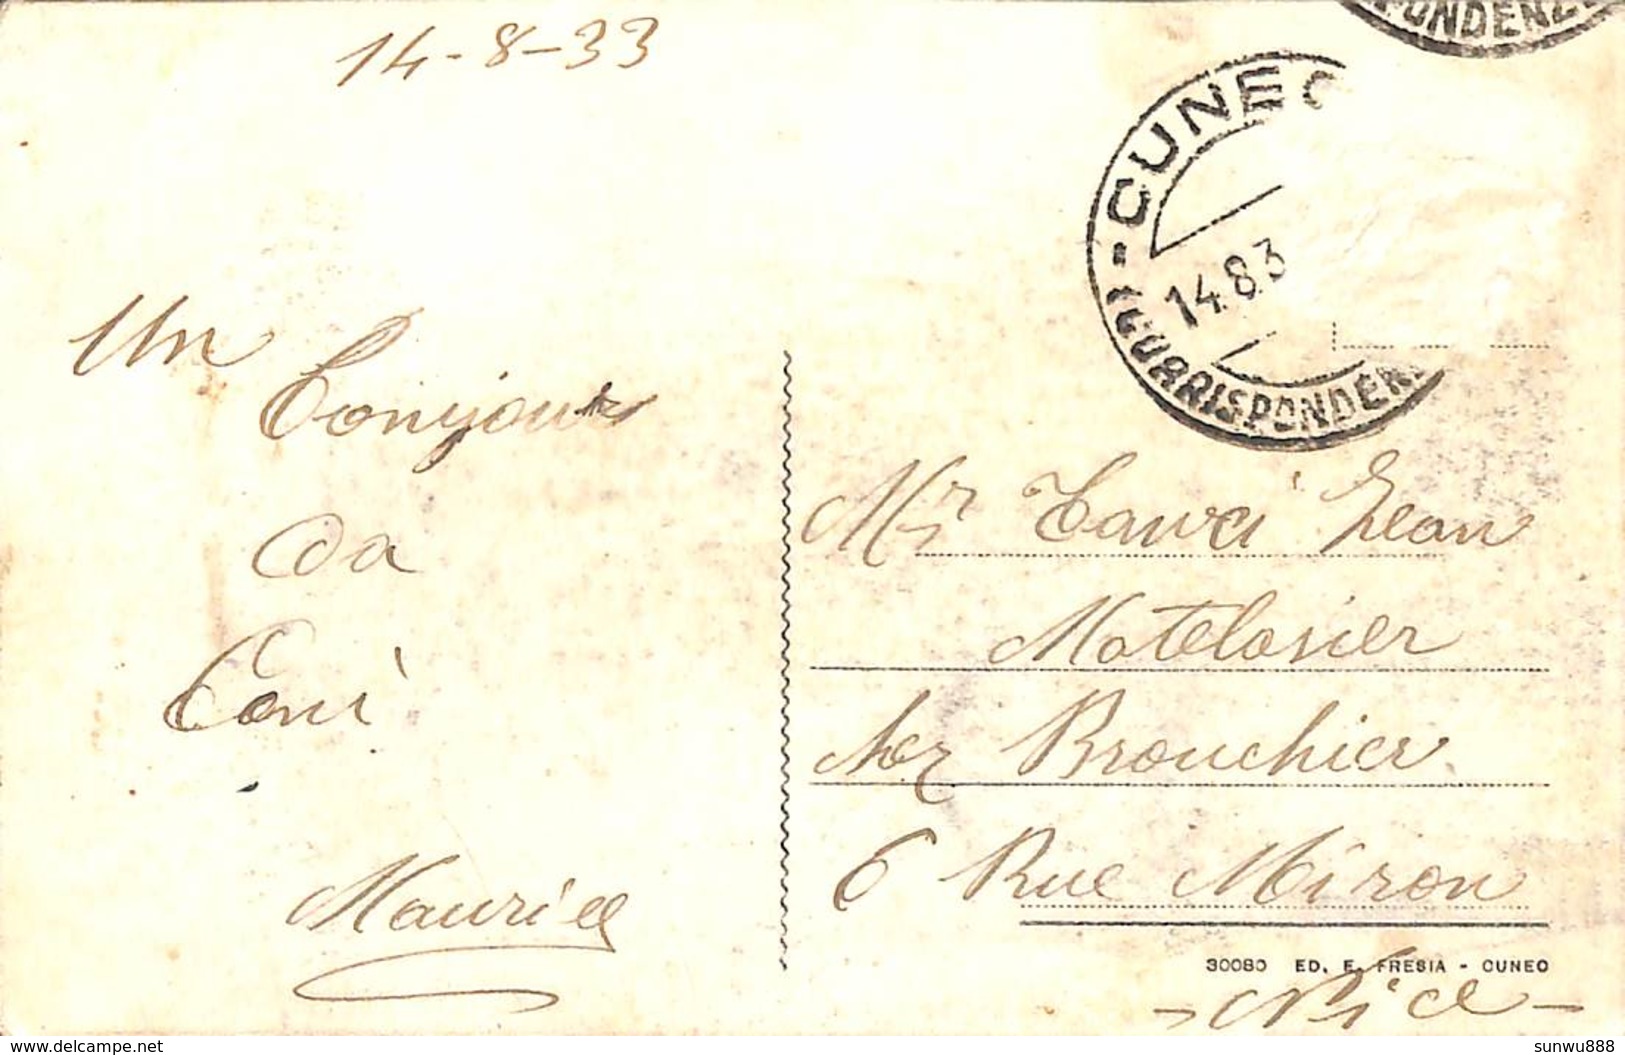 14-8-33
PONDENZE
CUNEO
14.8.3
(CORRISPONDEN
Un
Bonjour
da
Coni
Maurice
Mr Jean
Matelasier
chez Brouchier
6 Rue Miron
30080 ED. E. FRESIA - CUNEO
- Nice -
delcampe.net
sunwu888